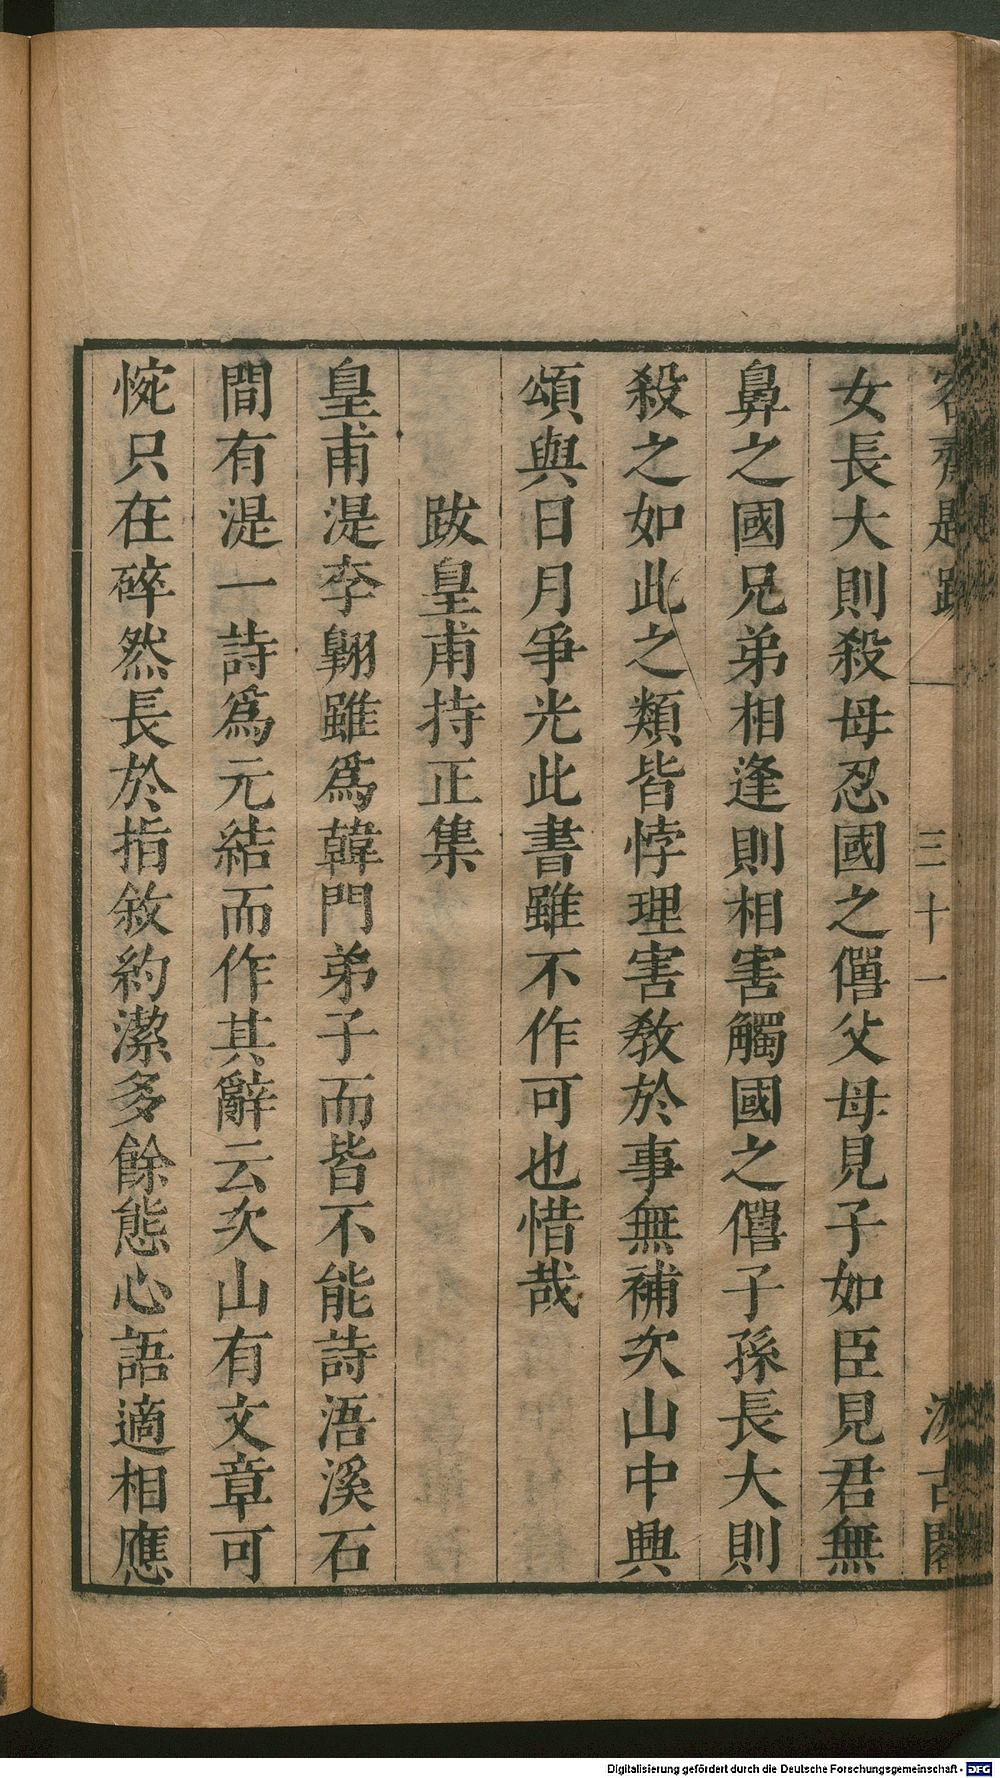 容齋題跋 一 三十一 汲古閣
女長大則殺母忍國之僧父母見子如臣見君無
鼻之國兄弟相逢則相害觸國之僧子孫長大則
殺之如此之類皆悖理害敎於事無補次山中興
頌與日月爭光此書雖不作可也惜哉
跋皇甫持正集
皇甫湜李翺雖爲韓門弟子而皆不能詩浯溪石
間有湜一詩爲元結而作其辭云次山有文章可
惋只在碎然長於指敘約潔多餘態心語適相應
Digitalisierung gefördert durch die Deutsche Forschungsgemeinschaft - DFG